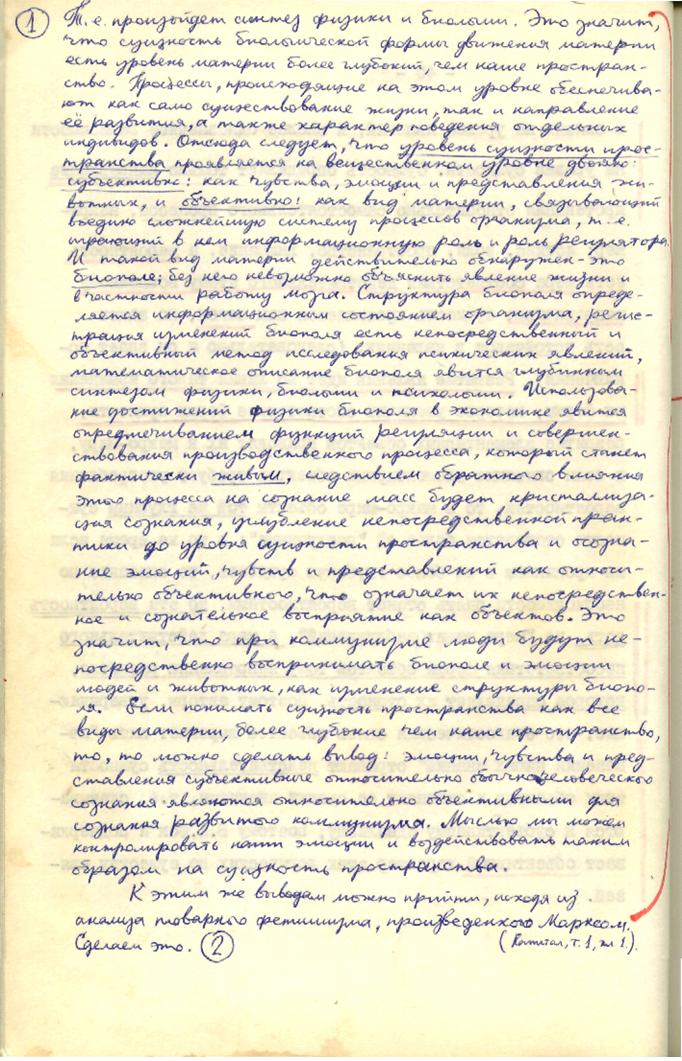 1 Т. е. произойдет синтез физики и биологии. Это значит,
что сущность биологической формы движения материи
есть уровень материи более глубокий, чем наше простран-
ство. Процессы, происходящие на этом уровне обеспечива-
ют как само существование жизни, так и направление
её развития, а также характер поведения отдельных
индивидов. Отсюда следует, что уровень сущности прос-
транства проявляется на вещественном уровне двояко:
субъективно: как чувства, эмоции и представления жи-
вотных, и объективно: как вид материи, связывающий
воедино сложнейшую систему процессов организма, т. е.
играющий в нем информационную роль и роль регулятора.
И такой вид материи действительно обнаружен - это
биополе; без него невозможно объяснить явление жизни и
в частности работу мозга. Структура биополя опреде-
ляется информационным состоянием организма, регис-
трация изменений биополя есть непосредственный и
объективный метод исследования психических явлений,
математическое описание биополя явится глубинным
синтезом физики, биологии и психологии. Использова-
ние достижений физики биополя в экономике явится
опредмечиванием функций регуляции и совершен-
ствования производственного процесса, который станет
фактически живым, следствием обратного влияния
этого процесса на сознание масс будет кристаллиза-
ция сознания, углубление непосредственной прак-
тики до уровня сущности пространства и осозна-
ние эмоций, чувств и представлений как относи-
тельно объективного, что означает их непосредствен-
ное и сознательное восприятие как объектов. Это
значит, что при коммунизме люди будут не-
посредственно воспринимать биополе и эмоции
людей и животных, как изменение структуры биопо-
ля. Если понимать сущность пространства как все
виды материи, более глубокие чем наше пространство,
то, то можно сделать вывод: эмоции, чувства и пред-
ставления субъективные относительно обычночеловеческого
сознания являются относительно объективными для
сознания развитого коммунизма. Мыслью мы можем
контролировать наши эмоции и воздействовать таким
образом на сущность пространства.
К этим же выводам можно прийти, исходя из
анализа товарного фетишизма, произведенного Марксом.
Сделаем это. 2 (Капитал, т. 1, гл 1.).